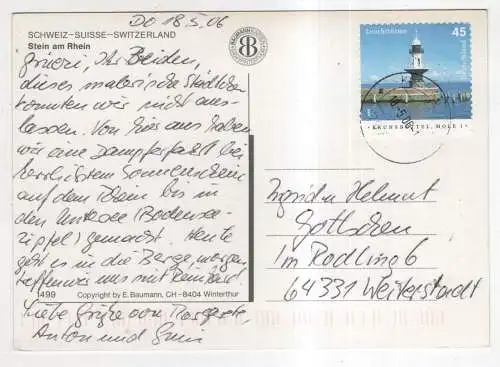 Do 18.5.06
SCHWEIZ-SUISSE-SWITZERLAND
Stein am Rhein
Grüezi, Ihr Beiden,
dieses malerische Städtchen
konnten wir nicht aus-
lassen. Von hier aus haben
wir eine Dampferfahrt bei
herrlichstem Sonnenschein
auf dem Rhein bis in
den Untersee (Bodensee-
zipfel) gemacht. Heute
geht es in die Berge, morgen
treffen wir uns mit
1499 Copyright by E. Baumann, CH-8404 Winterthur
Liebe Grüße von
Anton und
Leuchttürme
45
Deutschland
BRUNSBÜTTEL, MOLE 1
18.5.06
Ingrid u Helmut
Im Rödling 6
64331 Weiterstadt